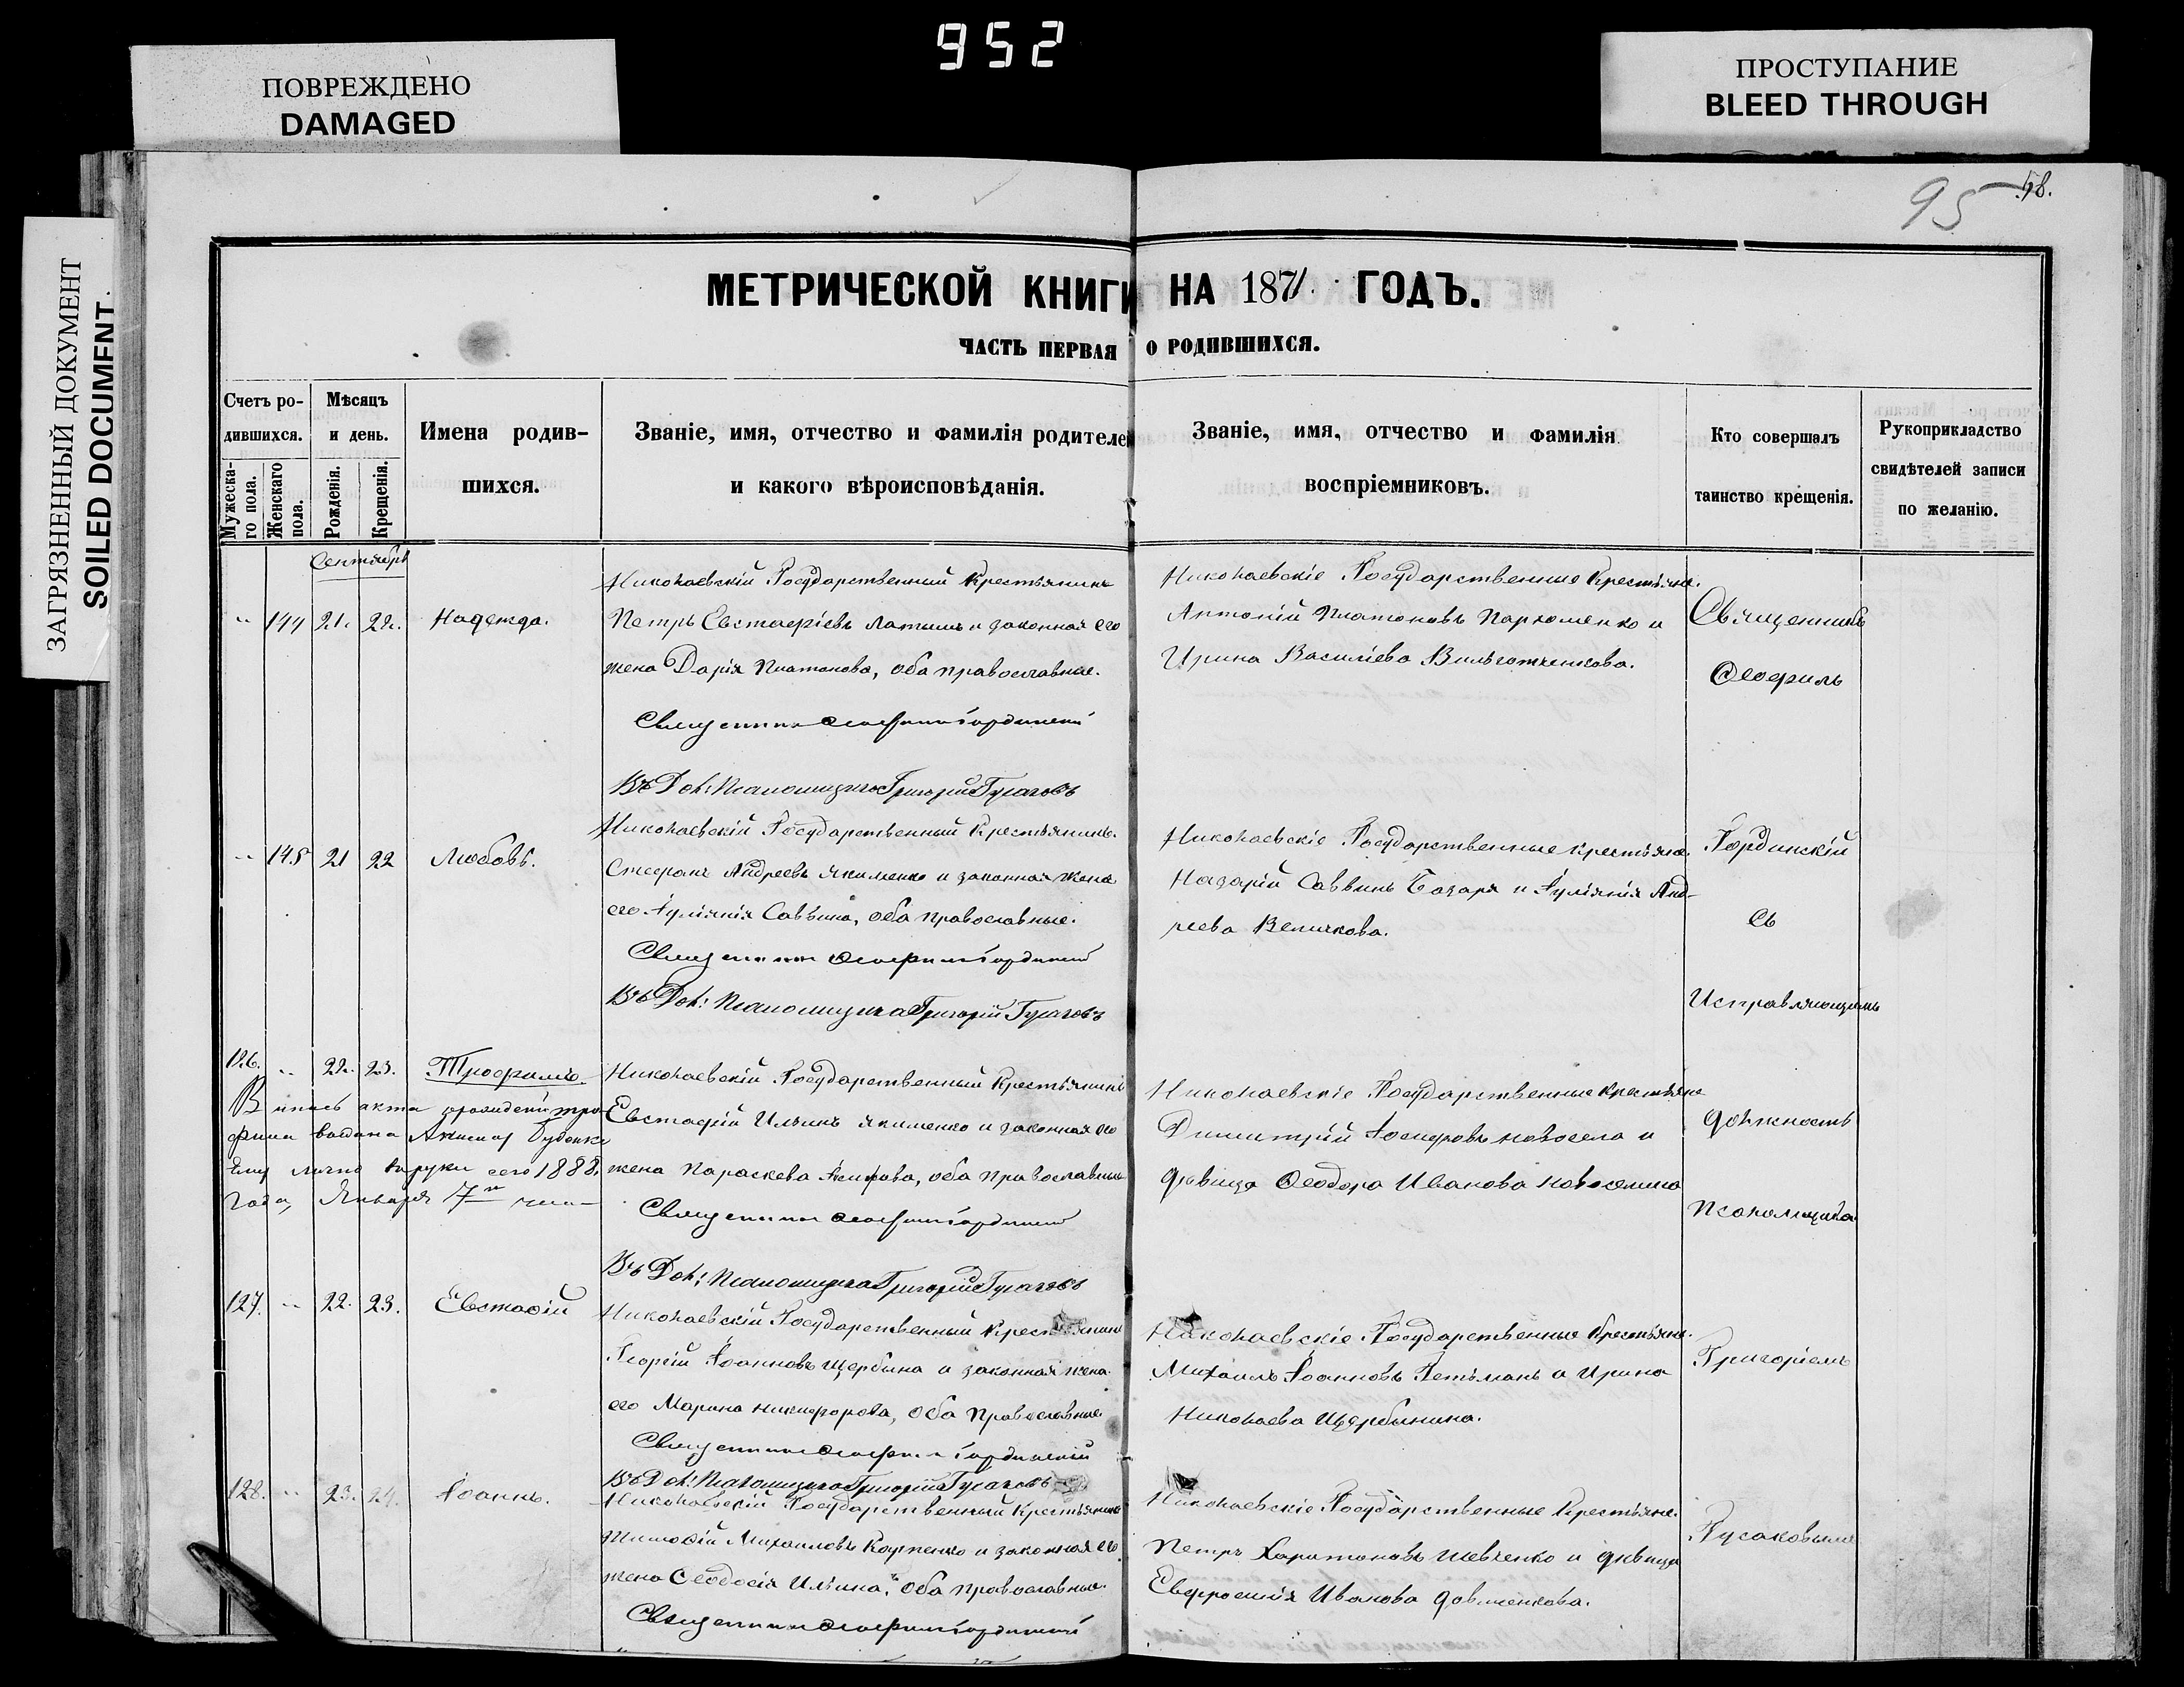 952
ПОВРЕЖДЕНО
DAMAGED
ПРОСТУПАНИЕ
BLEED THROUGH
ЗАГРЯЗНЕННЫЙ ДОКУМЕНТ
SOILED DOCUMENT.
95
МЕТРИЧЕСКОЙ КНИГИ НА 1871. ГОДЪ.
ЧАСТЬ ПЕРВАЯ О РОДИВШИХСЯ.
Счетъ ро-
дившихся.
Мужеска-
го пола.
Женскаго
пола.
Мѣсяцъ
и день.
Рожденія.
Крещенія.
Имена родив-
шихся.
Званіе, имя, отчество и фамилія родителей
и какого вѣроисповѣданія.
Званіе, имя, отчество и фамилія
воспріемниковъ.
Кто совершалъ
таинство крещенія.
Рукоприкладство
свидѣтелей записи
по желанію.
Сентябрь
„ 144 21. 22. Надежда.
Николаевскій Государственный Крестьянинъ
Петръ Евстафіевъ Латышъ и законная его
жена Дарія Платонова, оба православные.
Священникъ Ѳеофилъ Гординскій
Въ Дол: Псаломщика Григорій Гусаковъ
Николаевскіе Государственные Крестьяне.
Антоній Платоновъ Пархоменко и
Ирина Василіева
„ 145 21 22 Любовь.
Николаевскій Государственный Крестьянинъ.
Стефанъ Андреевъ Якименко и законная жена
его Іуліанія Саввина, оба православные.
Священникъ Ѳеофилъ Гординскій
Въ Дол: Псаломщика Григорій Гусаковъ
Николаевскіе Государственные крестьяне.
Назарій Саввинъ Базара и Іуліанія Анд-
реева Величкова.
126. „ 22. 23. Трофимъ.
акта
выдана
Ему лично въ руки сего 1888.
года, Января 7го
Николаевскій Государственный Крестьянинъ
Евстафій Ильинъ Якименко и законная его
жена Параскева оба православные
Священникъ Ѳеофилъ Гординскій
Въ Дол: Псаломщика Григорій Гусаковъ
Николаевскіе Государственные Крестьяне
Димитрій Іосифовъ Новосела и
дѣвица Ѳеодора Иванова
127. „ 22. 23. Евстафій
Николаевскій Государственный Крестьянинъ
Георгій Іоанновъ Щербина и законная жена
его Марина Никифорова, оба православные.
Священникъ Ѳеофилъ Гординскій
Въ Дол: Псаломщика Григорій Гусаковъ
Николаевскіе Государственные Крестьяне.
Михаилъ Іоанновъ Гетьманъ и Ирина
Николаева Щербинина.
128. „ 23. 24. Іоаннъ.
Николаевскій Государственный Крестьянинъ
Тимофій Михаиловъ Карпенко и законная его
жена Ѳеодосія Ильина, оба православные.
Священникъ Ѳеофилъ Гординскій
Николаевскіе Государственные Крестьяне.
Петръ Харитоновъ Шевченко и дѣвица
Евфросинія Иванова Довженкова.
Священникъ
Ѳеофилъ
Гординскій
Съ
Исправляющимъ
должность
Псаломщика
Григоріемъ
Гусаковымъ